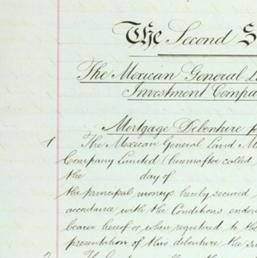 The Second S
The Mexican General L
Investment Compa
Mortgage Debenture
1 The Mexican General Land M
Company Limited (hereinafter called
the day of
the principal moneys hereby secured
accordance with the Conditions endor
bearer hereof or when registered to th
presentation of this debenture the
2